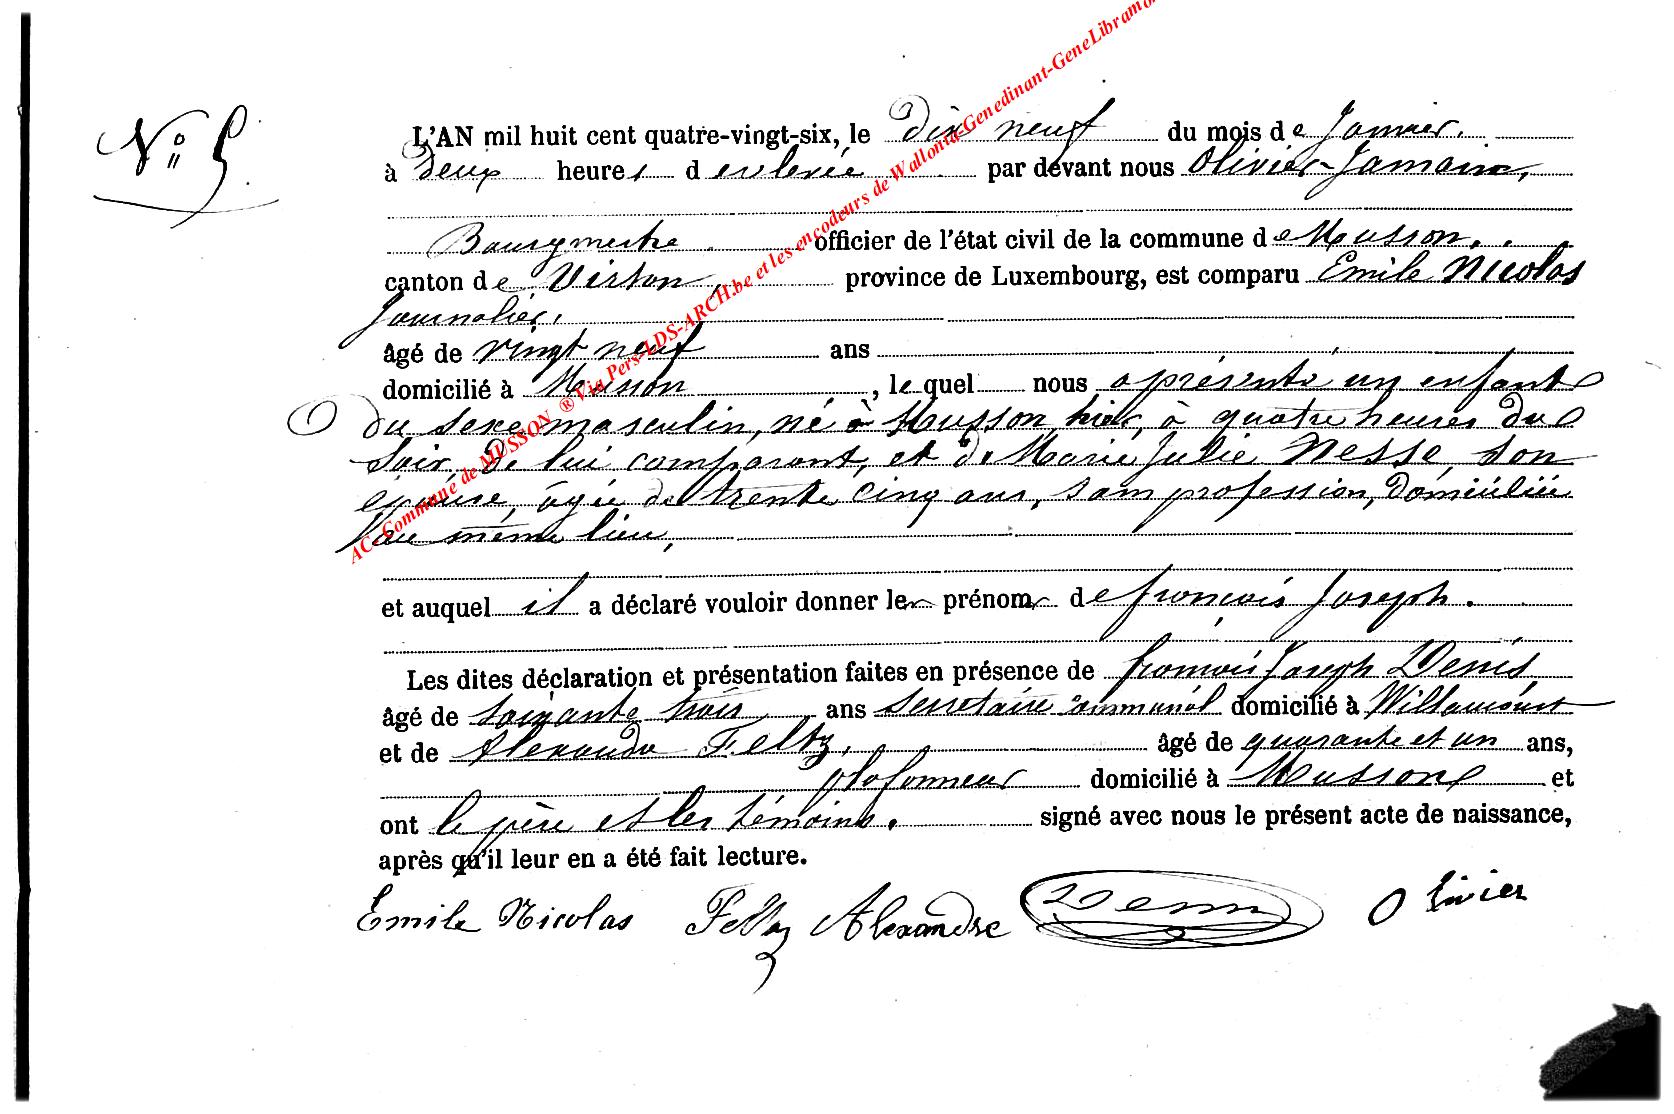 N° 5
L'AN mil huit cent quatre-vingt-six, le dix neuf du mois de Janvier.
à Deux heures d enlevée par devant nous Olivier-Jamain,
Bourgmestre officier de l'état civil de la commune de Musson.
canton de Virton, province de Luxembourg, est comparu Emile Nicolas
Journalier,
âgé de vingt neuf ans
domicilié à Musson, lequel nous a présenté un enfant
du sexe masculin, né à Musson, hier, à quatre heures du
soir, de lui comparant, et de Marie Julie Nesse, son
épouse, âgée de trente cinq ans, sans profession, domiciliée
au même lieu,
et auquel il a déclaré vouloir donner les prénoms de françois Joseph.
Les dites déclaration et présentation faites en présence de françois Joseph Denis
âgé de soixante trois ans secrétaire communal domicilié à Willancourt
et de Alexandre Feltz, âgé de quarante et un ans,
plafonneur domicilié à Musson et
ont le père et les témoins. signé avec nous le présent acte de naissance,
après qu'il leur en a été fait lecture.
Emile Nicolas Feltz Alexandre Denis Olivier
AC-Commune de MUSSON ® Via Pers-LDS-ARCH.be et les encodeurs de Wallonia-Genedinant-GeneLibramon